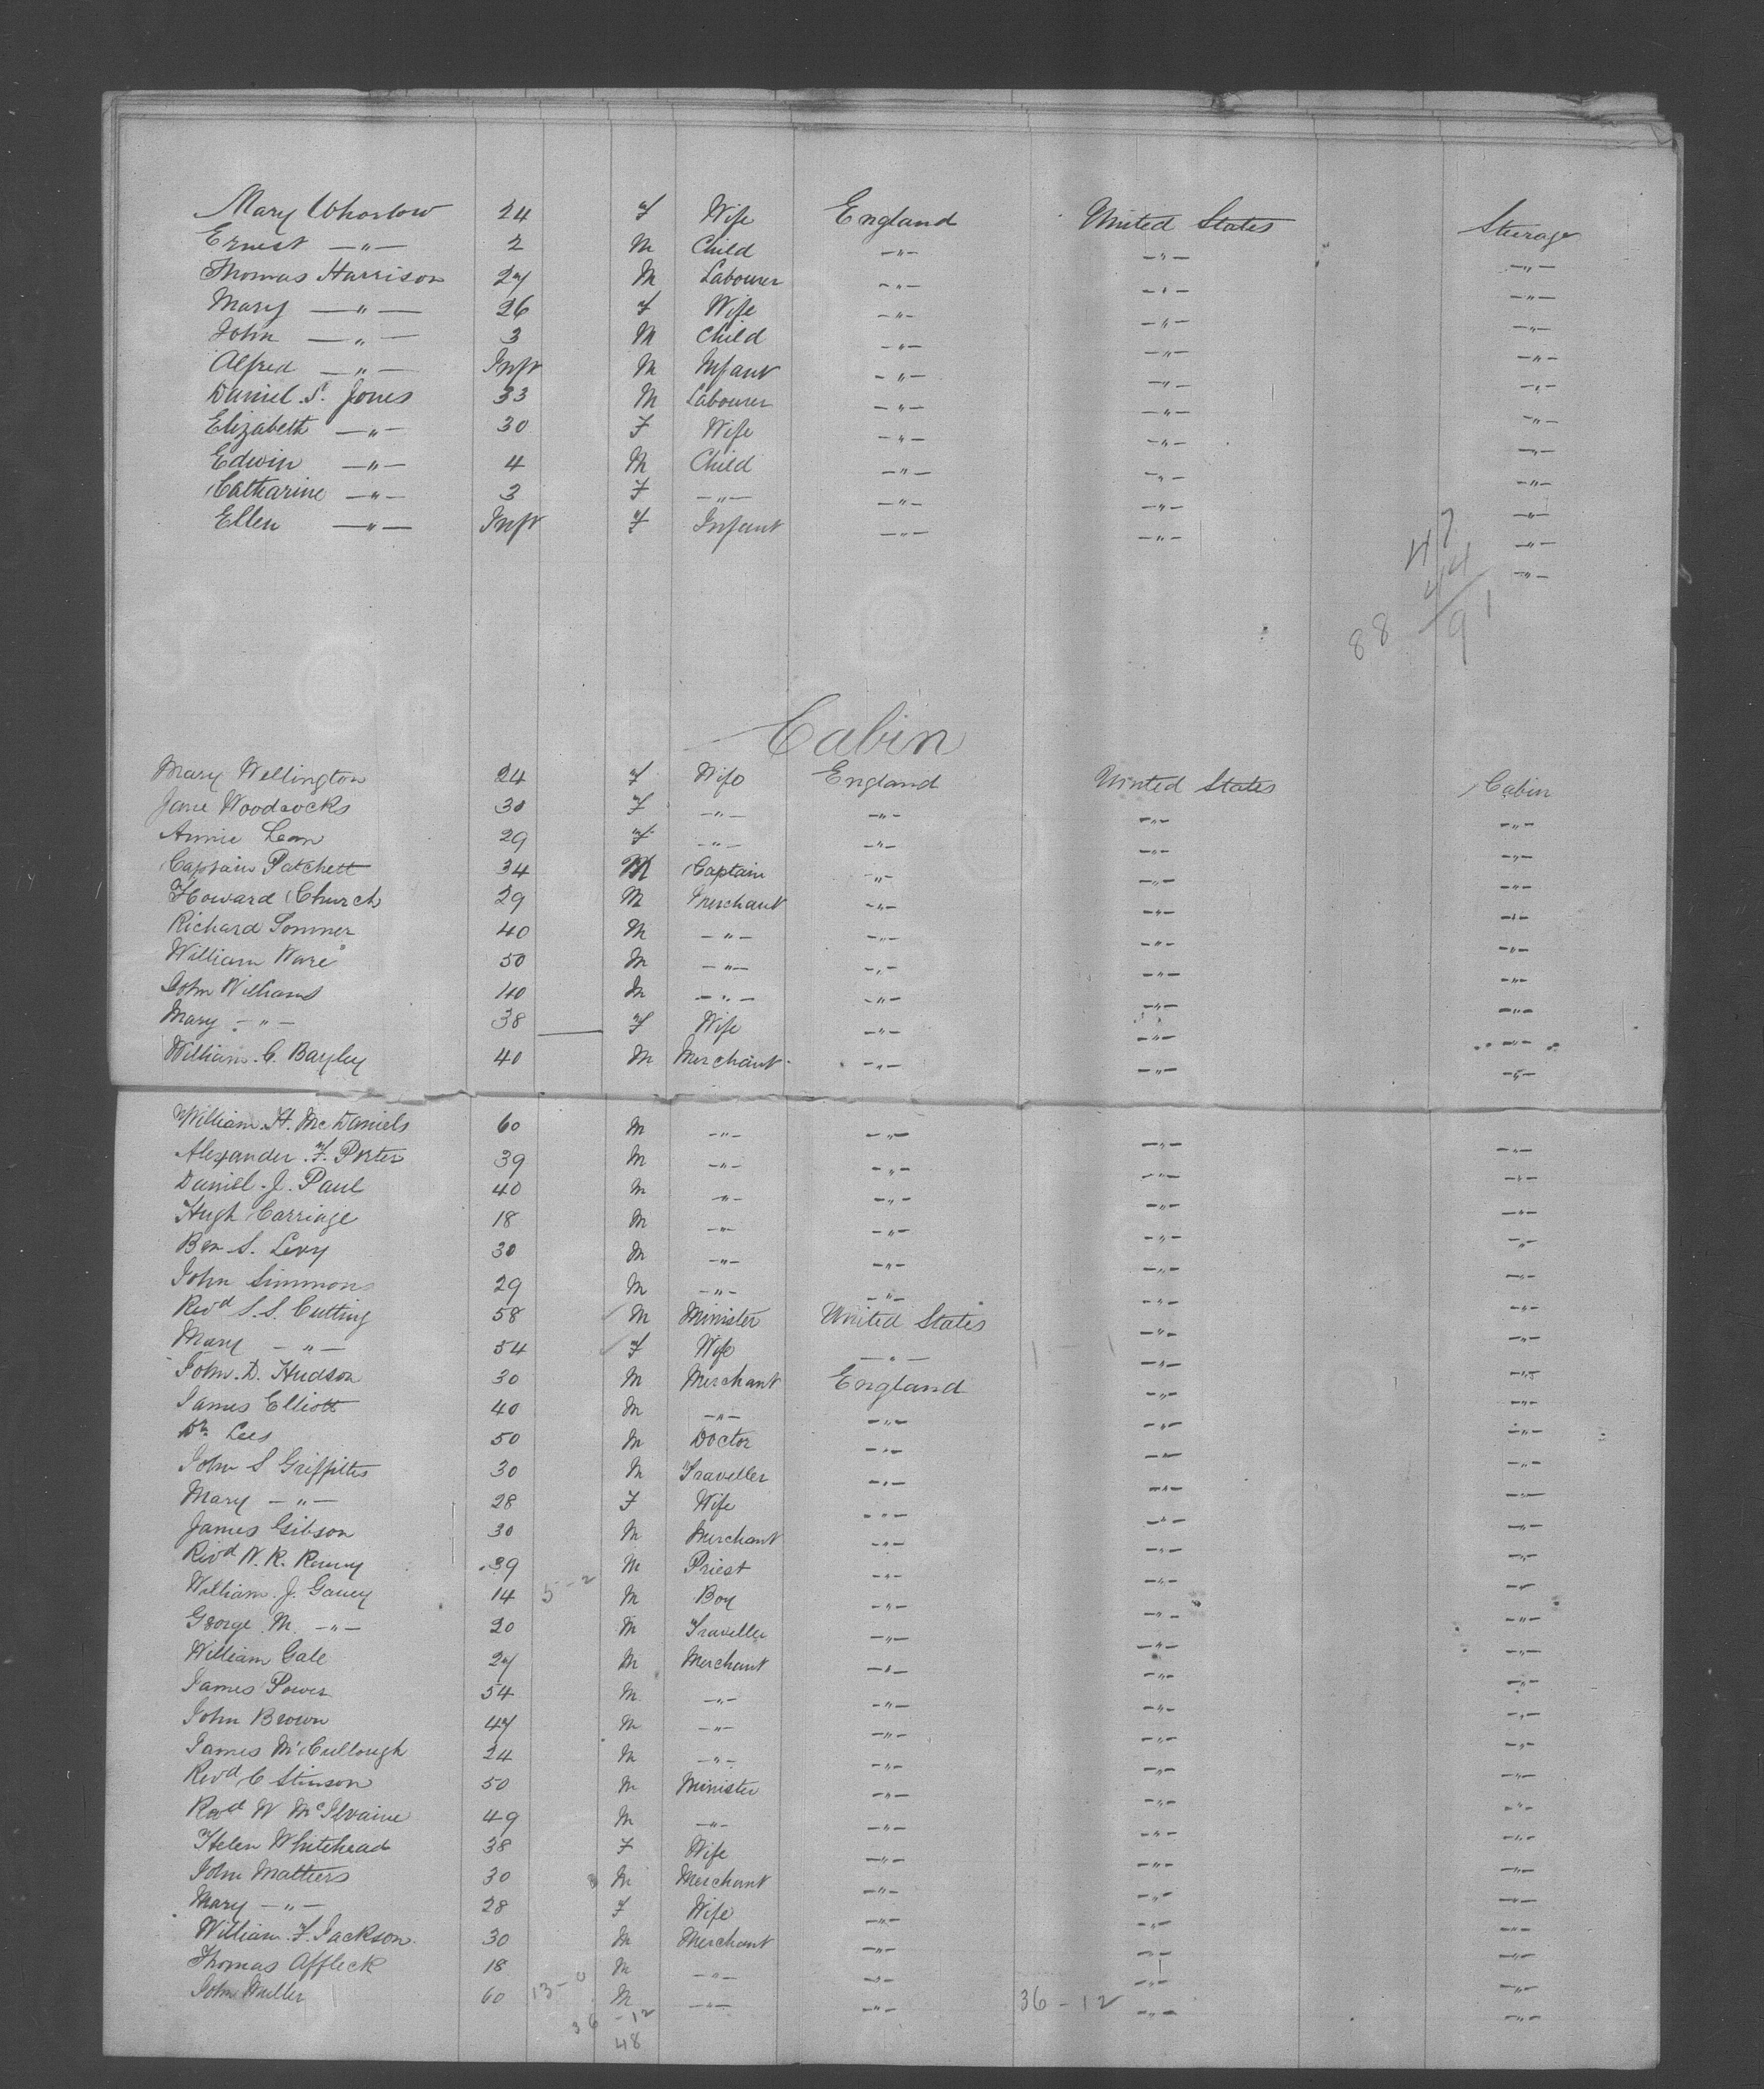 Mary Whorlow 24 F Wife England United States Steerage
Ernest —"— 2 M Child —"— —"— —"—
Thomas Harrison 27 M Labourer —"— —"— —"—
Mary —"— 26 F Wife —"— —"— —"—
John —"— 3 M Child —"— —"— —"—
Alfred —"— Inft M Infant —"— —"— —"—
Daniel S. Jones 33 M Labourer —"— —"— —"—
Elizabeth —"— 30 F Wife —"— —"— —"—
Edwin —"— 4 M Child —"— —"— —"—
Catharine —"— 3 F —"— —"— —"— —"—
Ellen —"— Inft F Infant —"— —"— —"—
47
44
88 91
Cabin
Mary Wellington 24 F Wife England United States Cabin
Jane Woodcocks 30 F —"— —"— —"— —"—
Annie Lean 29 F —"— —"— —"— —"—
Captain Patchett 34 M Captain —"— —"— —"—
Howard Church 29 M Merchant —"— —"— —"—
Richard Sommer 40 M —"— —"— —"— —"—
William Ware 50 M —"— —"— —"— —"—
John Williams 40 M —"— —"— —"— —"—
Mary —"— 38 F Wife —"— —"— —"—
William G. Bayley 40 M Merchant —"— —"— —"—
William H. McDaniels 60 M —"— —"— —"— —"—
Alexander F. Porter 39 M —"— —"— —"— —"—
Daniel J. Paul 40 M —"— —"— —"— —"—
Hugh Carriage 18 M —"— —"— —"— —"—
Ben S. Levy 30 M —"— —"— —"— —"—
John Simmons 29 M —"— —"— —"— —"—
Revd S. S. Cutting 58 M Minister United States —"— —"—
Mary —"— 54 F Wife —"— —"— —"—
John D. Hudson 30 M Merchant England —"— —"—
James Elliott 40 M —"— —"— —"— —"—
Dr. Lees 50 M Doctor —"— —"— —"—
John S Griffiths 30 M Traveller —"— —"— —"—
Mary —"— 28 F Wife —"— —"— —"—
James Gibson 30 M Merchant —"— —"— —"—
Revd W. R. 39 M Priest —"— —"— —"—
William J. Gauey 14 5-2 M Boy —"— —"— —"—
George M. —"— 20 M Traveller —"— —"— —"—
William Gale 27 M Merchant —"— —"— —"—
James Power 54 M —"— —"— —"— —"—
John Brown 47 M —"— —"— —"— —"—
James McCullough 24 M —"— —"— —"— —"—
Revd C Stinson 50 M Minister —"— —"— —"—
Revd W McIlvaine 49 M —"— —"— —"— —"—
Helen Whitehead 38 F Wife —"— —"— —"—
John Mathers 30 M Merchant —"— —"— —"—
Mary —"— 28 F Wife —"— —"— —"—
William F. Jackson 30 M Merchant —"— —"— —"—
Thomas Affleck 18 M —"— —"— —"— —"—
John Muller 60 13-0 M —"— —"— 36-12 —"— —"—
36-12
48